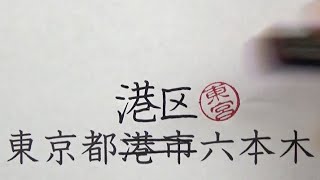 港区 東宮
東京都港市六本木